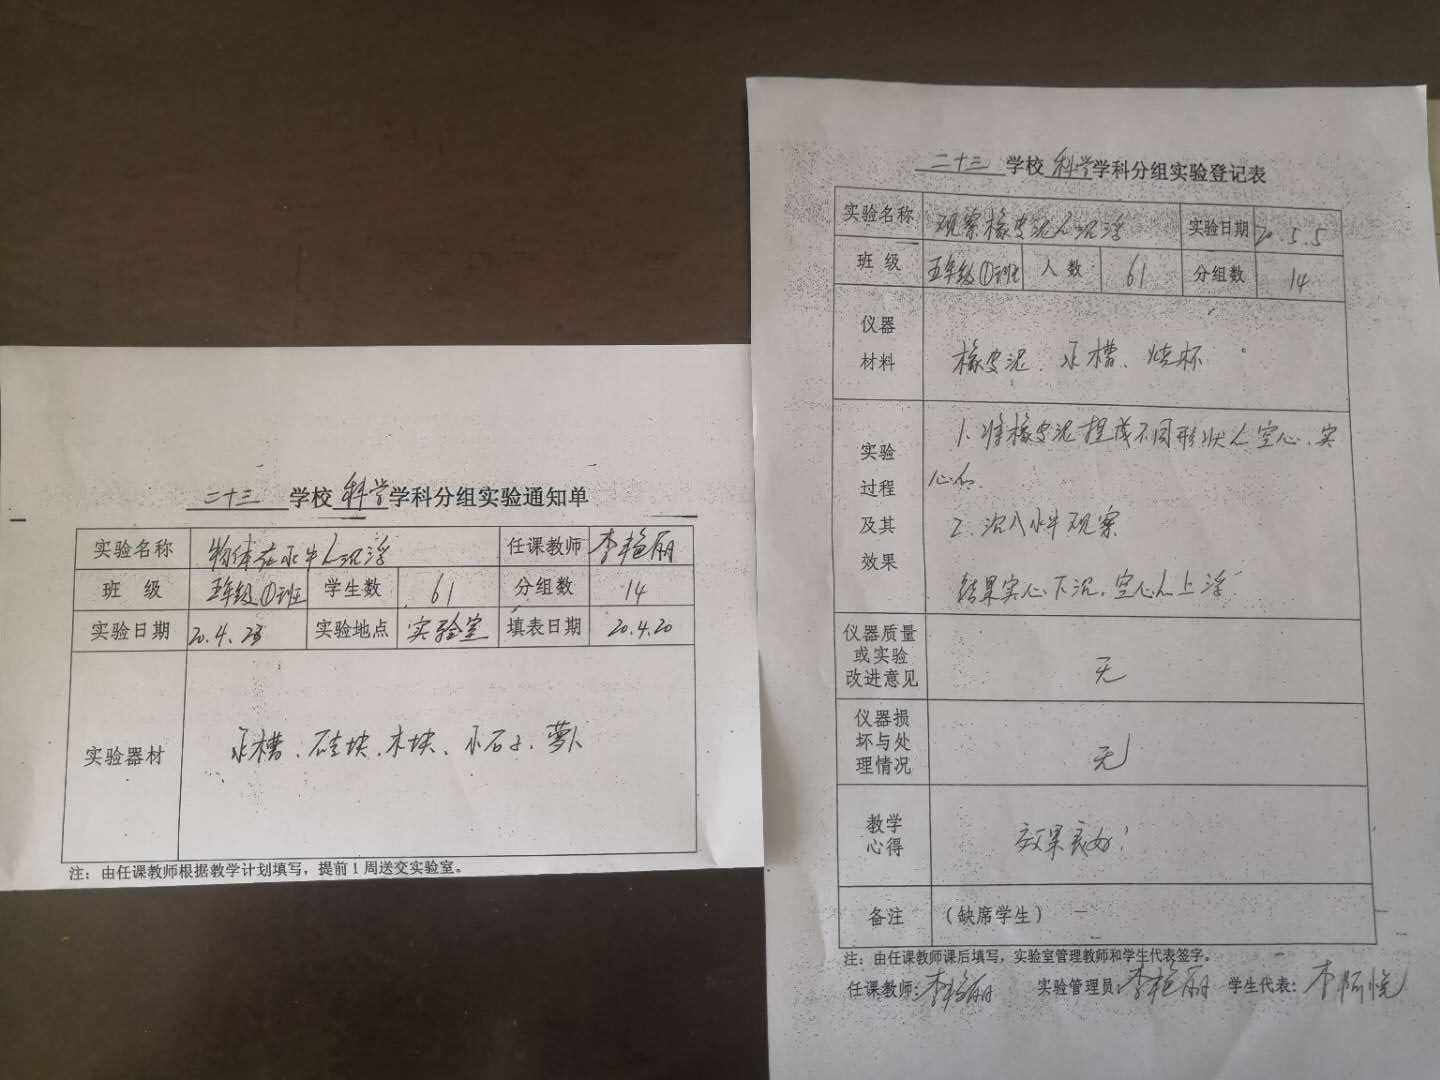 二十三 学校 科学 学科分组实验通知单
实验名称 物体在水中的沉浮 任课教师 李艳丽
班 级 五年级①班 学生数 61 分组数 14
实验日期 20.4.28 实验地点 实验室 填表日期 20.4.20
实验器材 水槽、硅块、木块、小石子、萝卜
注：由任课教师根据教学计划填写，提前1周送交实验室。
二十三 学校 科学 学科分组实验登记表
实验名称 观察橡皮泥的沉浮 实验日期 20.5.5
班 级 五年级①班 人 数 61 分组数 14
仪器
材料 橡皮泥、水槽、烧杯
实验
过程
及其
效果
1、将橡皮泥捏成不同形状的空心、实
心的.
2、沉入水中观察
结果实心下沉，空心的上浮
仪器质量
或实验
改进意见 无
仪器损
坏与处
理情况 无
教学
心得 效果良好！
备注 （缺席学生） —
注：由任课教师课后填写，实验室管理教师和学生代表签字。
任课教师：李艳丽 实验管理员：李艳丽 学生代表：李